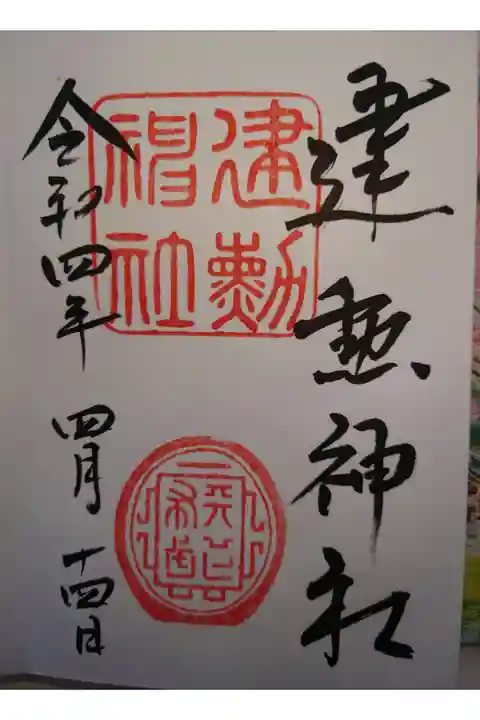 建勲神社
建勳
神社
令和四年 四月 十四日